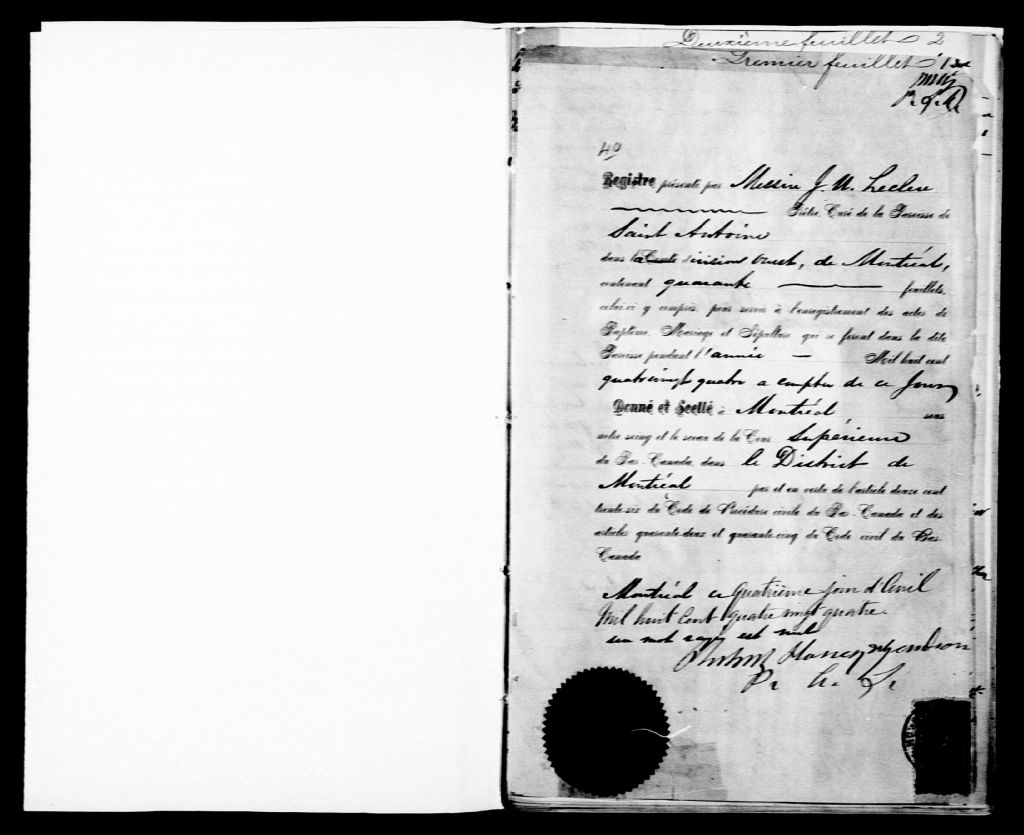 Deuxième feuillet 2
Premier feuillet 1
40
Registre présenté par Messire J. U. Leclerc
Prêtre, Curé de la Paroisse de
Saint Antoine
dans la Comté division ouest, de Montréal,
contenant quarante feuillets,
celui-ci y compris, pour servir à l'enregistrement des actes de
Baptême, Mariage et Sépulture qui se feront dans la dite
Paroisse pendant l'année Mil huit cent
quatrevingt quatre a compter de ce jour
Donné et Scellé à Montréal, sous
notre seing et le sceau de la Cour Supérieure
du Bas-Canada, dans le District de
Montréal par et en vertu de l'article douze cent
trente-six du Code de Procédure civile du Bas-Canada et des
articles quarante-deux et quarante-cinq du Code civil du Bas-
Canada
Montréal ce quatrième jour d'Avril
Mil huit Cent quatre vingt quatre
un mot rayé est nul
Gendron